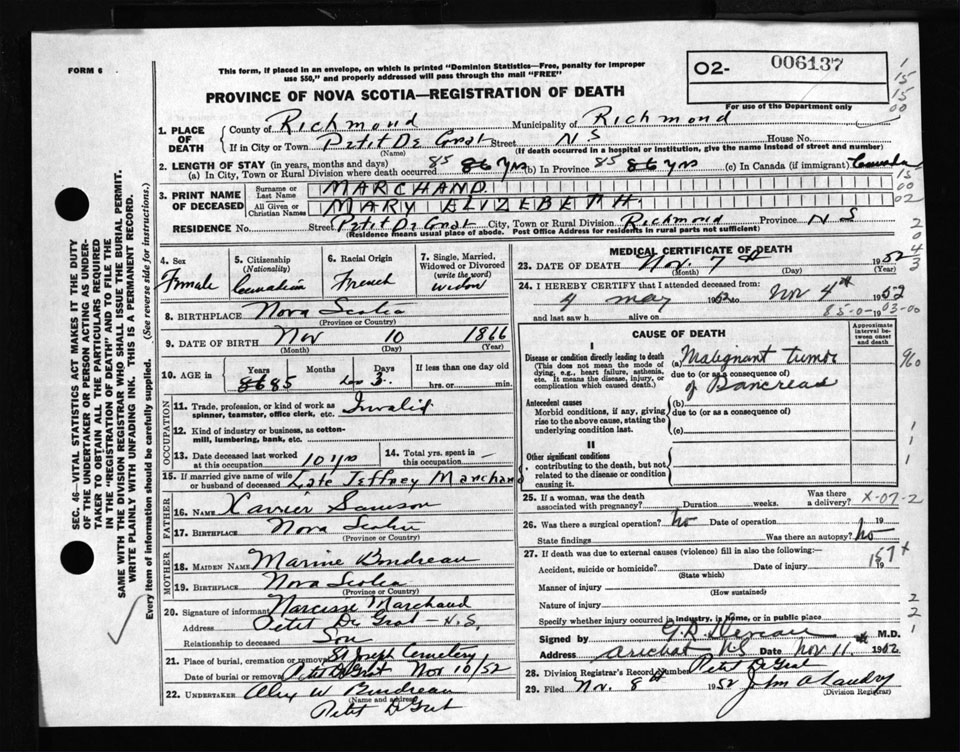 FORM 6
This form, if placed in an envelope, on which is printed "Dominion Statistics—Free, penalty for improper
use $50," and properly addressed will pass through the mail "FREE"
PROVINCE OF NOVA SCOTIA—REGISTRATION OF DEATH
O2- 006137
For use of the Department only
1
15
15
00
1. PLACE OF DEATH
County of Richmond Municipality of Richmond
If in City or Town Petit De Grat Street N S House No.
(Name) (If death occurred in a hospital or institution, give name instead of street and number)
2. LENGTH OF STAY (in years, months and days)
(a) In City, Town or Rural Division where death occurred 85 86 yrs (b) In Province 85 86 yrs (c) In Canada (if immigrant) Canada
15
00
02
3. PRINT NAME OF DECEASED
Surname or Last Name MARCHAND
All Given or Christian Names MARY ELIZEBETH
RESIDENCE No. Street Petit De Grat City, Town or Rural Division Richmond Province N S
(Residence means usual place of abode. Post Office Address for residents in rural parts not sufficient)
2
0
4
3
4. Sex
Female
5. Citizenship
(Nationality)
Canadian
6. Racial Origin
French
7. Single, Married,
Widowed or Divorced
(write the word)
widow
8. BIRTHPLACE Nova Scotia
(Province or Country)
9. DATE OF BIRTH Nov 10 1866
(Month) (Day) (Year)
10. AGE in Years Months Days If less than one day
86 85 3 hrs. or min.
OCCUPATION
11. Trade, profession, or kind of work as
spinner, teamster, office clerk, etc. Invalid
12. Kind of industry or business, as cotton-
mill, lumbering, bank, etc.
13. Date deceased last worked
at this occupation 10 yrs
14. Total yrs. spent in
this occupation —
15. If married give name of wife
or husband of deceased Late Jeffrey Marchand
FATHER
16. NAME Xavier Samson
17. BIRTHPLACE Nova Scotia
(Province or Country)
MOTHER
18. MAIDEN NAME Marine Boudreau
19. BIRTHPLACE Nova Scotia
(Province or Country)
20. Signature of informant Narcisse Marchand
Address Petit De Grat - N.S.
Relationship to deceased Son
21. Place of burial, cremation or removal St Joseph Cemetery
Date of burial or removal Petit De Grat Nov 10/52
22. UNDERTAKER Alex W Boudreau
(Name and address)
Petit D Grat
MEDICAL CERTIFICATE OF DEATH
23. DATE OF DEATH Nov. 7 1952
(Month) (Day) (Year)
24. I HEREBY CERTIFY that I attended deceased from:
4 may 1952 to Nov 4th 1952
and last saw h alive on 85-0-03-00
CAUSE OF DEATH
Approximate
interval be-
tween onset
and death
I
Disease or condition directly leading to death
(This does not mean the mode of
dying, e.g., heart failure, asthenia,
etc. It means the disease, injury, or
complication which caused death.)
(a) Malignant tumor
due to (or as a consequence of)
of Pancreas
Antecedent causes
Morbid conditions, if any, giving
rise to the above cause, stating the
underlying condition last.
(b)
due to (or as a consequence of)
(c)
II
Other significant conditions
contributing to the death, but not
related to the disease or condition
causing it.
960
1
1
1
25. If a woman, was the death
associated with pregnancy? Duration weeks. Was there a delivery? X-07-2
26. Was there a surgical operation? no Date of operation 19
State findings Was there an autopsy? no
27. If death was due to external causes (violence) fill in also the following:— 157 x
Accident, suicide or homicide? Date of injury 19
(State which)
Manner of injury
(How sustained)
Nature of injury
Specify whether injury occurred in industry, in home, or in public place
2
2
1
Signed by M.D.
Address Arichat NS Date Nov 11. 1952
28. Division Registrar's Record Number Petit De Grat
29. Filed Nov. 8th 1952 John A Landry
(Division Registrar)
SEC. 46—VITAL STATISTICS ACT MAKES IT THE DUTY
OF THE UNDERTAKER OR PERSON ACTING AS UNDER-
TAKER TO OBTAIN ALL THE PARTICULARS REQUIRED
IN THE "REGISTRATION OF DEATH" AND TO FILE THE
SAME WITH THE DIVISION REGISTRAR WHO SHALL ISSUE THE BURIAL PERMIT.
WRITE PLAINLY WITH UNFADING INK. THIS IS A PERMANENT RECORD.
Every item of information should be carefully supplied. (See reverse side for instructions.)